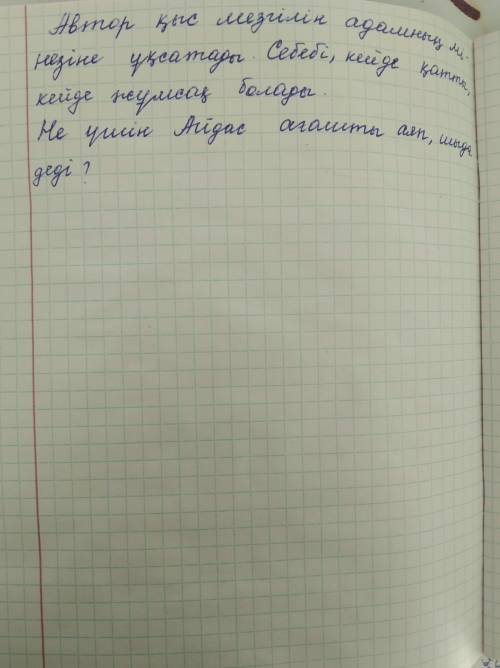 Автор қыс мезгілін адамның мі-
незіне ұқсатады. Себебі, кейде қатты,
кейде жұмсақ болады.
Не үшін Айдос ағашты аяп, шыда
деді?